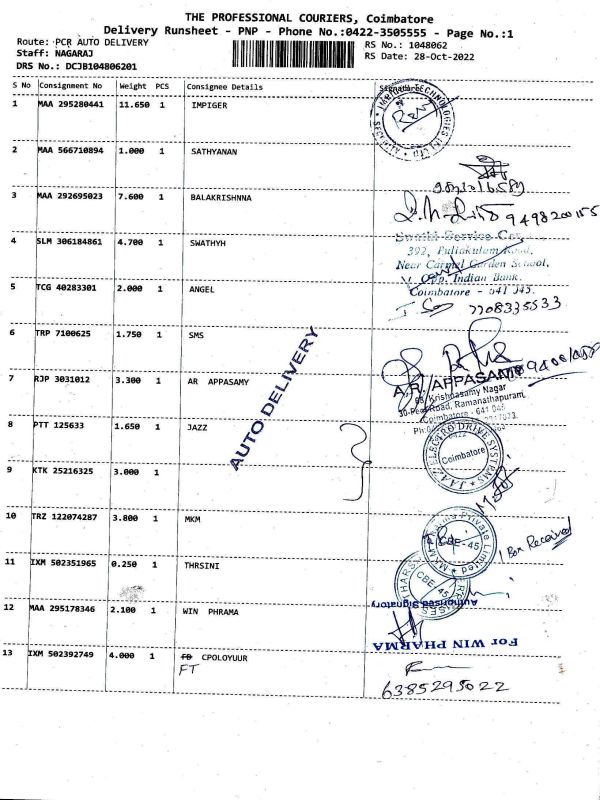 THE PROFESSIONAL COURIERS, Coimbatore
Delivery Runsheet - PNP - Phone No.:0422-3505555 - Page No.:1
Route: PCR AUTO DELIVERY
RS No.: 1048062
Staff: NAGARAJ
RS Date: 28-Oct-2022
DRS No.: DCJB104806201
S No Consignment No Weight PCS Consignee Details Signature
1 MAA 295280441 11.650 1 IMPIGER
2 MAA 566710894 1.000 1 SATHYANAN
3 MAA 292695023 7.600 1 BALAKRISHNNA
9498200155
4 SLM 306184861 4.700 1 SWATHYH
Swathi Service Cen
392, Puliakulam Road,
Near Carmel Garden School,
Opp. Indian Bank,
Coimbatore - 641 045.
5 TCG 40283301 2.000 1 ANGEL
7708335533
6 TRP 7100625 1.750 1 SMS
AUTO DELIVERY
7 RJP 3031012 3.300 1 AR APPASAMY
A.R. APPASAMY
Krishnasamy Nagar
Road, Ramanathapuram,
Coimbatore - 641 045
8 PTT 125633 1.650 1 JAZZ
JAZZ ELECTRO DRIVE SYSTEMS
Coimbatore
9 KTK 25216325 3.000 1
10 TRZ 122074287 3.800 1 MKM
Private Limited
CBE-45
1 Box Received
11 IXM 502351965 0.250 1 THRSINI
CBE 45
Authorised Signatory
12 MAA 295178346 2.100 1 WIN PHRAMA
For WIN PHARMA
13 IXM 502392749 4.000 1 FD CPOLOYUUR
FT
6385295022